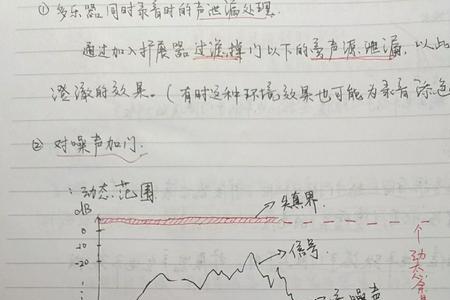 ① 多乐器同时录音时的声泄漏处理.
通过加入扩展器过滤掉门以下的 声源泄漏, 以达
澄澈的效果。(有时这种环境效果也可能为录音添色
② 对噪声加门.
动态范围
dB
失真界.
0
-10
信号
-20
噪声
个动态余量